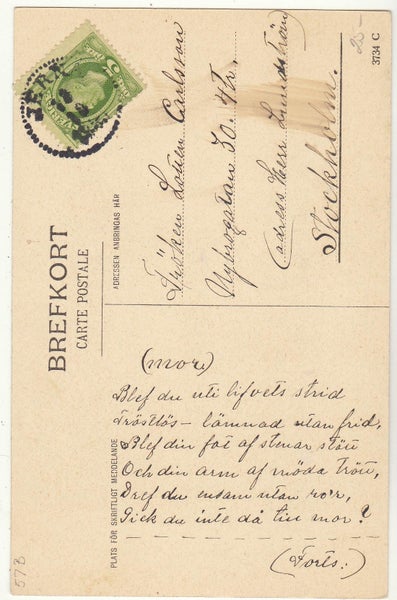 BREFKORT
CARTE POSTALE
ADRESSEN ANBRINGAS HÄR
Fröken Lotten Carlsson
Nybrogatan 30. 4 tr.
(adress Herr Lundström)
Stockholm.
25-
3734 C
PLATS FÖR SKRIFTLIGT MEDDELANDE
(mor)
Blef du uti lifvets strid
Tröstlös - lämnad utan frid,
Blef din fot af stenar stött
Och din arm af möda trött,
Dref du ensam utan ro'r,
Gick du inte då till mor?
(Forts:)
57B